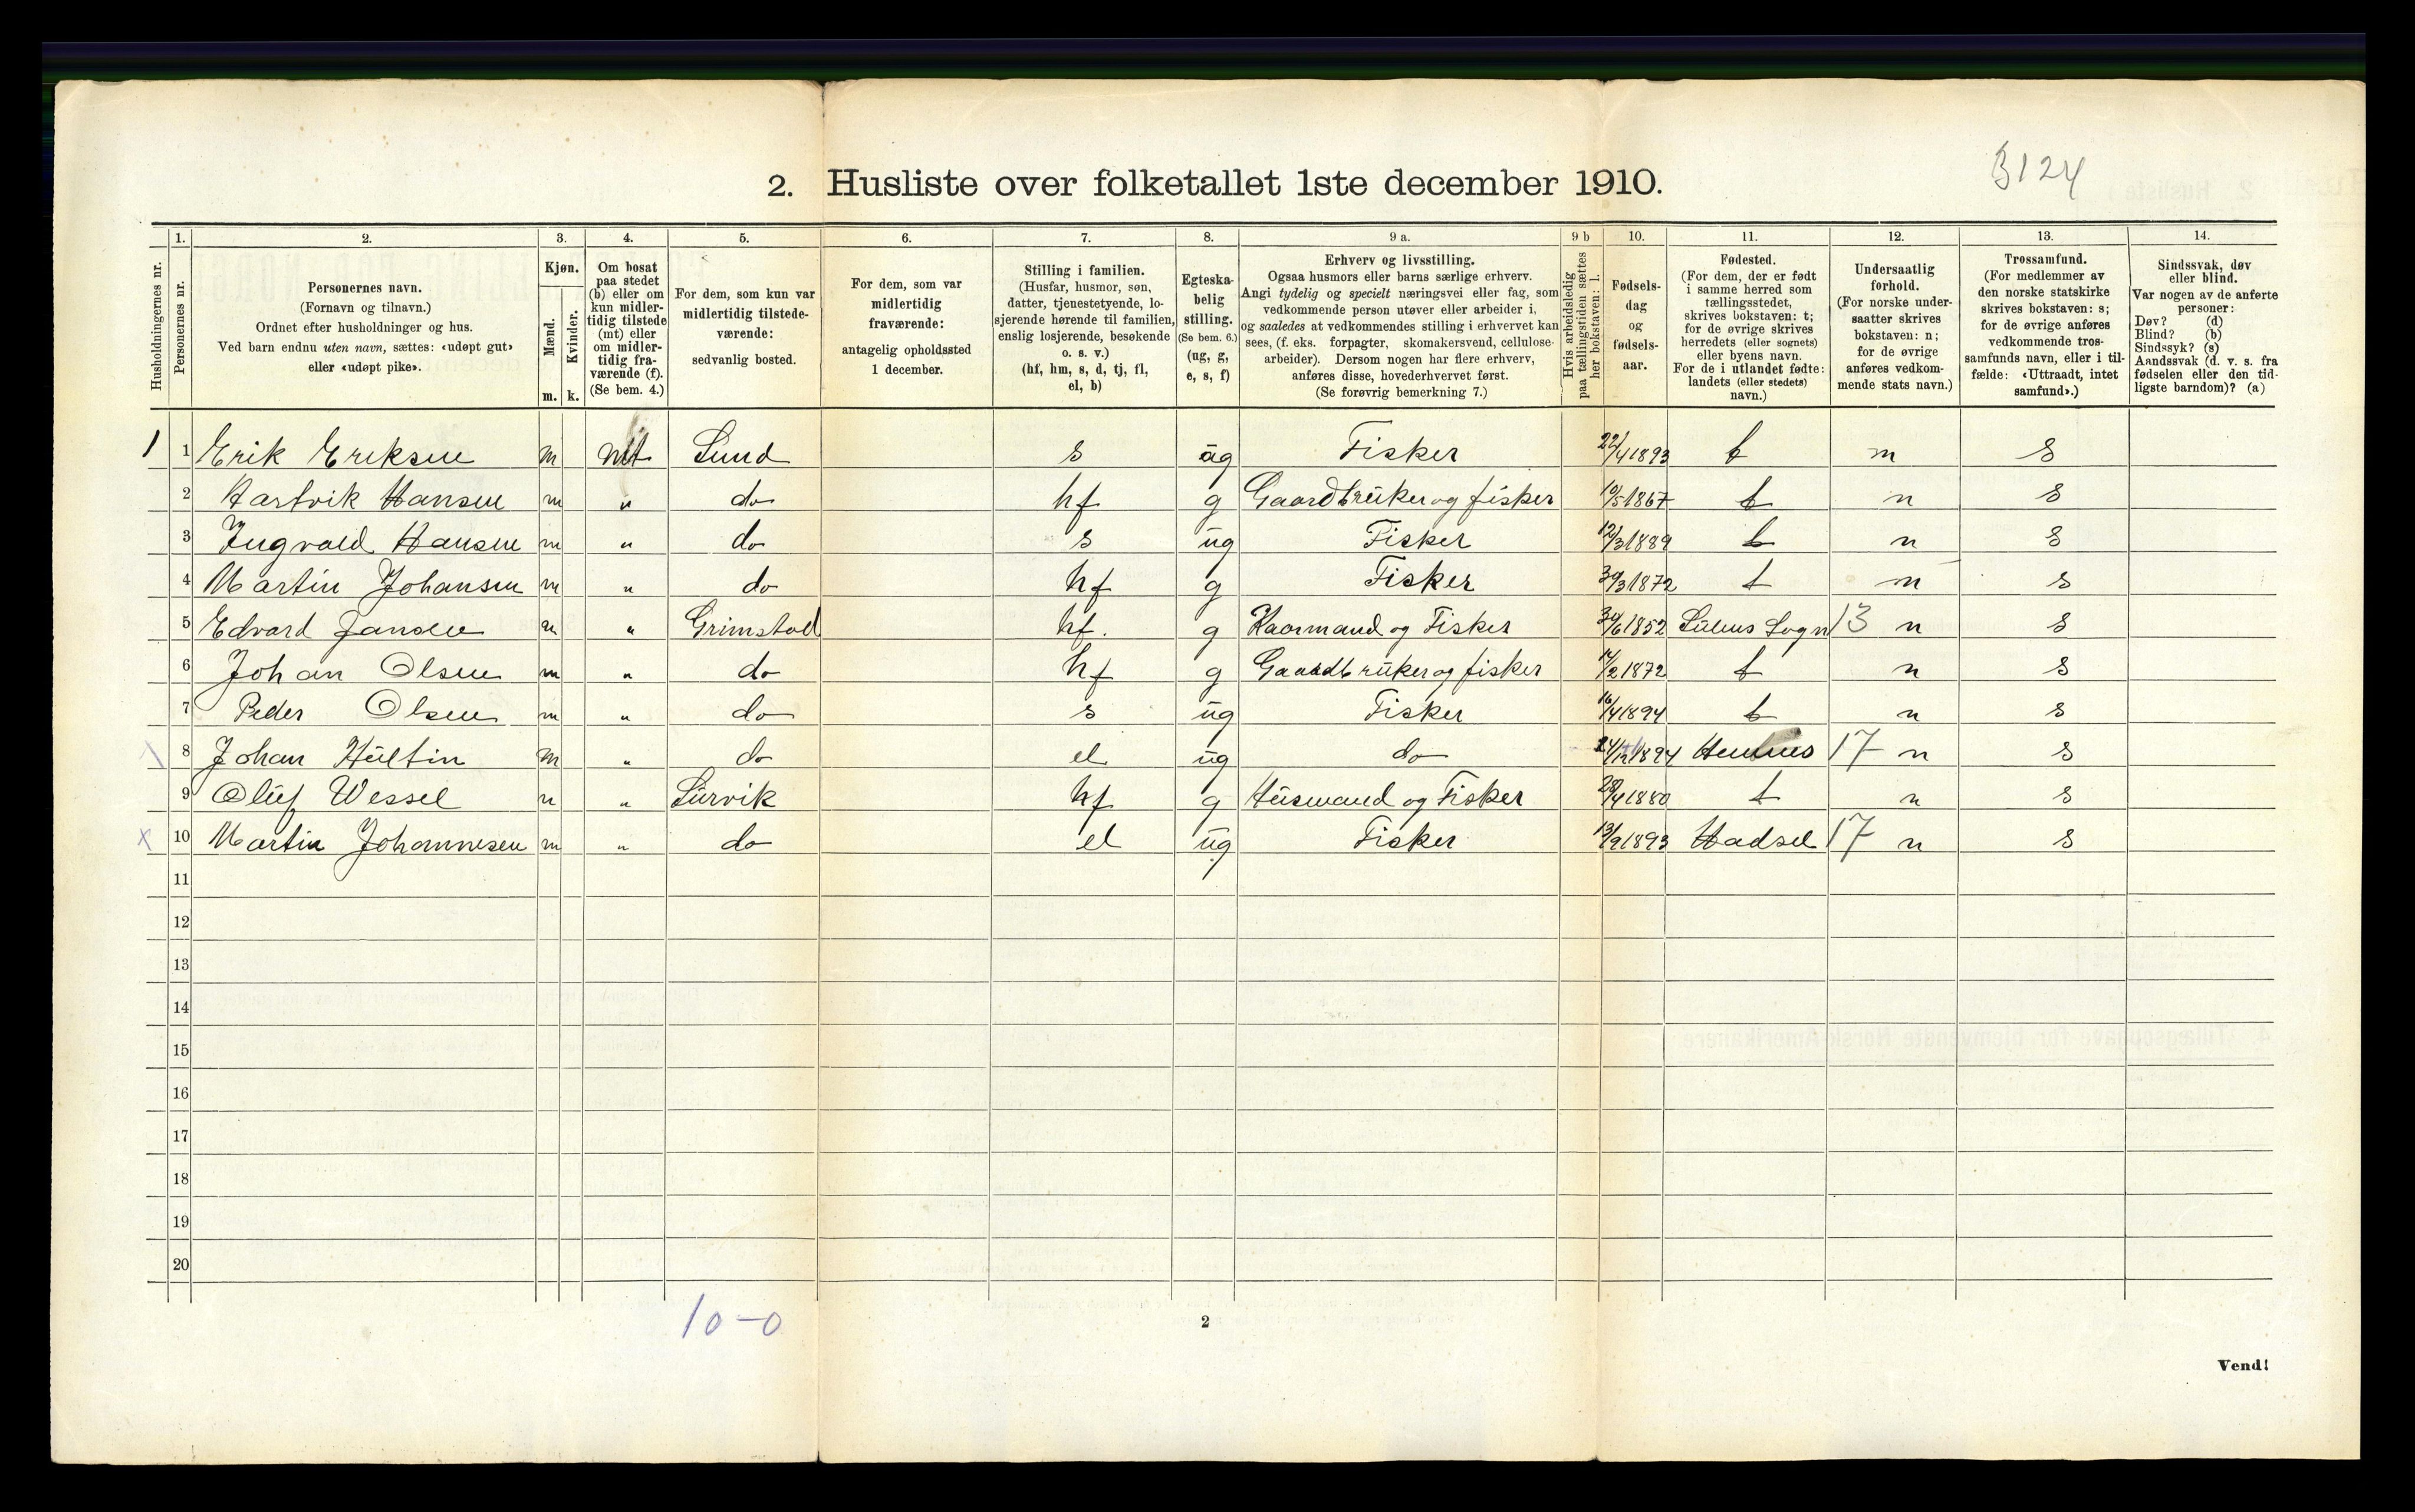 B124
2. Husliste over folketallet 1ste december 1910.
1. 2. 3. 4. 5. 6. 7. 8. 9 a. 9 b 10. 11. 12. 13. 14.
Husholdningernes nr.
Personernes nr.
Personernes navn.
(Fornavn og tilnavn.)
Ordnet efter husholdninger og hus.
Ved barn endnu uten navn, sættes: «udøpt gut»
eller «udøpt pike».
Kjøn.
Mænd.
Kvinder.
m. k.
Om bosat
paa stedet
(b) eller om
kun midler-
tidig tilstede
(mt) eller
om midler-
tidig fra-
værende (f).
(Se bem. 4.)
For dem, som kun var
midlertidig tilstede-
værende:
sedvanlig bosted.
For dem, som var
midlertidig
fraværende:
antagelig opholdssted
1 december.
Stilling i familien.
(Husfar, husmor, søn,
datter, tjenestetyende, lo-
sjerende hørende til familien,
enslig losjerende, besøkende
o. s. v.)
(hf, hm, s, d, tj, fl,
el, b)
Egteska-
belig
stilling.
(Se bem. 6.)
(ug, g,
e, s, f)
Erhverv og livsstilling.
Ogsaa husmors eller barns særlige erhverv.
Angi tydelig og specielt næringsvei eller fag, som
vedkommende person utøver eller arbeider i,
og saaledes at vedkommendes stilling i erhvervet kan
sees, (f. eks. forpagter, skomakersvend, cellulose-
arbeider). Dersom nogen har flere erhverv,
anføres disse, hovederhvervet først.
(Se forøvrig bemerkning 7.)
Hvis arbeidsledig
paa tællingstiden sættes
her bokstaven: l.
Fødsels-
dag
og
fødsels-
aar.
Fødested.
(For dem, der er født
i samme herred som
tællingsstedet,
skrives bokstaven: t;
for de øvrige skrives
herredets (eller sognets)
eller byens navn.
For de i utlandet fødte:
landets (eller stedets)
navn.)
Undersaatlig
forhold.
(For norske under-
saatter skrives
bokstaven: n;
for de øvrige
anføres vedkom-
mende stats navn.)
Trossamfund.
(For medlemmer av
den norske statskirke
skrives bokstaven: s;
for de øvrige anføres
vedkommende tros-
samfunds navn, eller i til-
fælde: «Uttraadt, intet
samfund».)
Sindssvak, døv
eller blind.
Var nogen av de anførte
personer:
Døv? (d)
Blind? (b)
Sindssyk? (s)
Aandssvak (d. v. s. fra
fødselen eller den tid-
ligste barndom)? (a)
1 1 Erik Eriksen m mt Lund s ug Fisker 22/4 1893 t n s
2 Hartvik Hansen m " do hf g Gaardbruker og fisker 10/5 1867 t n s
3 Ingvald Hansen m " do s ug Fisker 12/3 1889 t n s
4 Martin Johansen m " do hf g Fisker 30/3 1872 t n s
5 Edvard Jansen m " Grimstad hf. g Kaarmand og Fisker 30/6 1852 Sulens Sogn 13 n s
6 Johan Olsen m " do hf g Gaardbruker og fisker 14/2 1872 t n s
7 Peder Olsen m " do s ug Fisker 16/4 1894 t n s
8 Johan Hultin m " do el ug do 24/12 1894 Hemnes 17 n s
9 Oluf Wessel m " Survik hf g Husmand og Fisker 28/4 1880 t n s
x 10 Martin Johannesen m " do el ug Fisker 13/9 1893 Hadsel 17 n s
11
12
13
14
15
16
17
18
19
20
10-0
2
Vend!